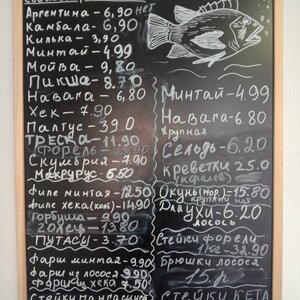 Аргентина - 6,90 нет
Камбала - 6,90
Килька - 3,90
Минтай - 4.99
Мойва - 9.80
Пикша - 8.70
Навага - 6,80
Хек - 7.90
Палтус - 39.0
Треска - 11.90
Форель
Скумбрия - 7.90
Макрурус - 5.50
филе минтая - 12.50
филе хека
Горбуша - 9.90
Голец - 13.80
Путассу - 3.70
фарш минтая - 9.90
фарш из лосося - 9.90
фарш из хека 7.50
Стейки
Минтай - 4.99
Навага - 6.80
крупная
Сельдь - 6.20
креветки 25.0
Окунь (мор.) - 15.80
крупный
Для ухи - 6.20
лосось
Стейки форели
32.90
Брюшки лосося
15 р.
Стейки кета